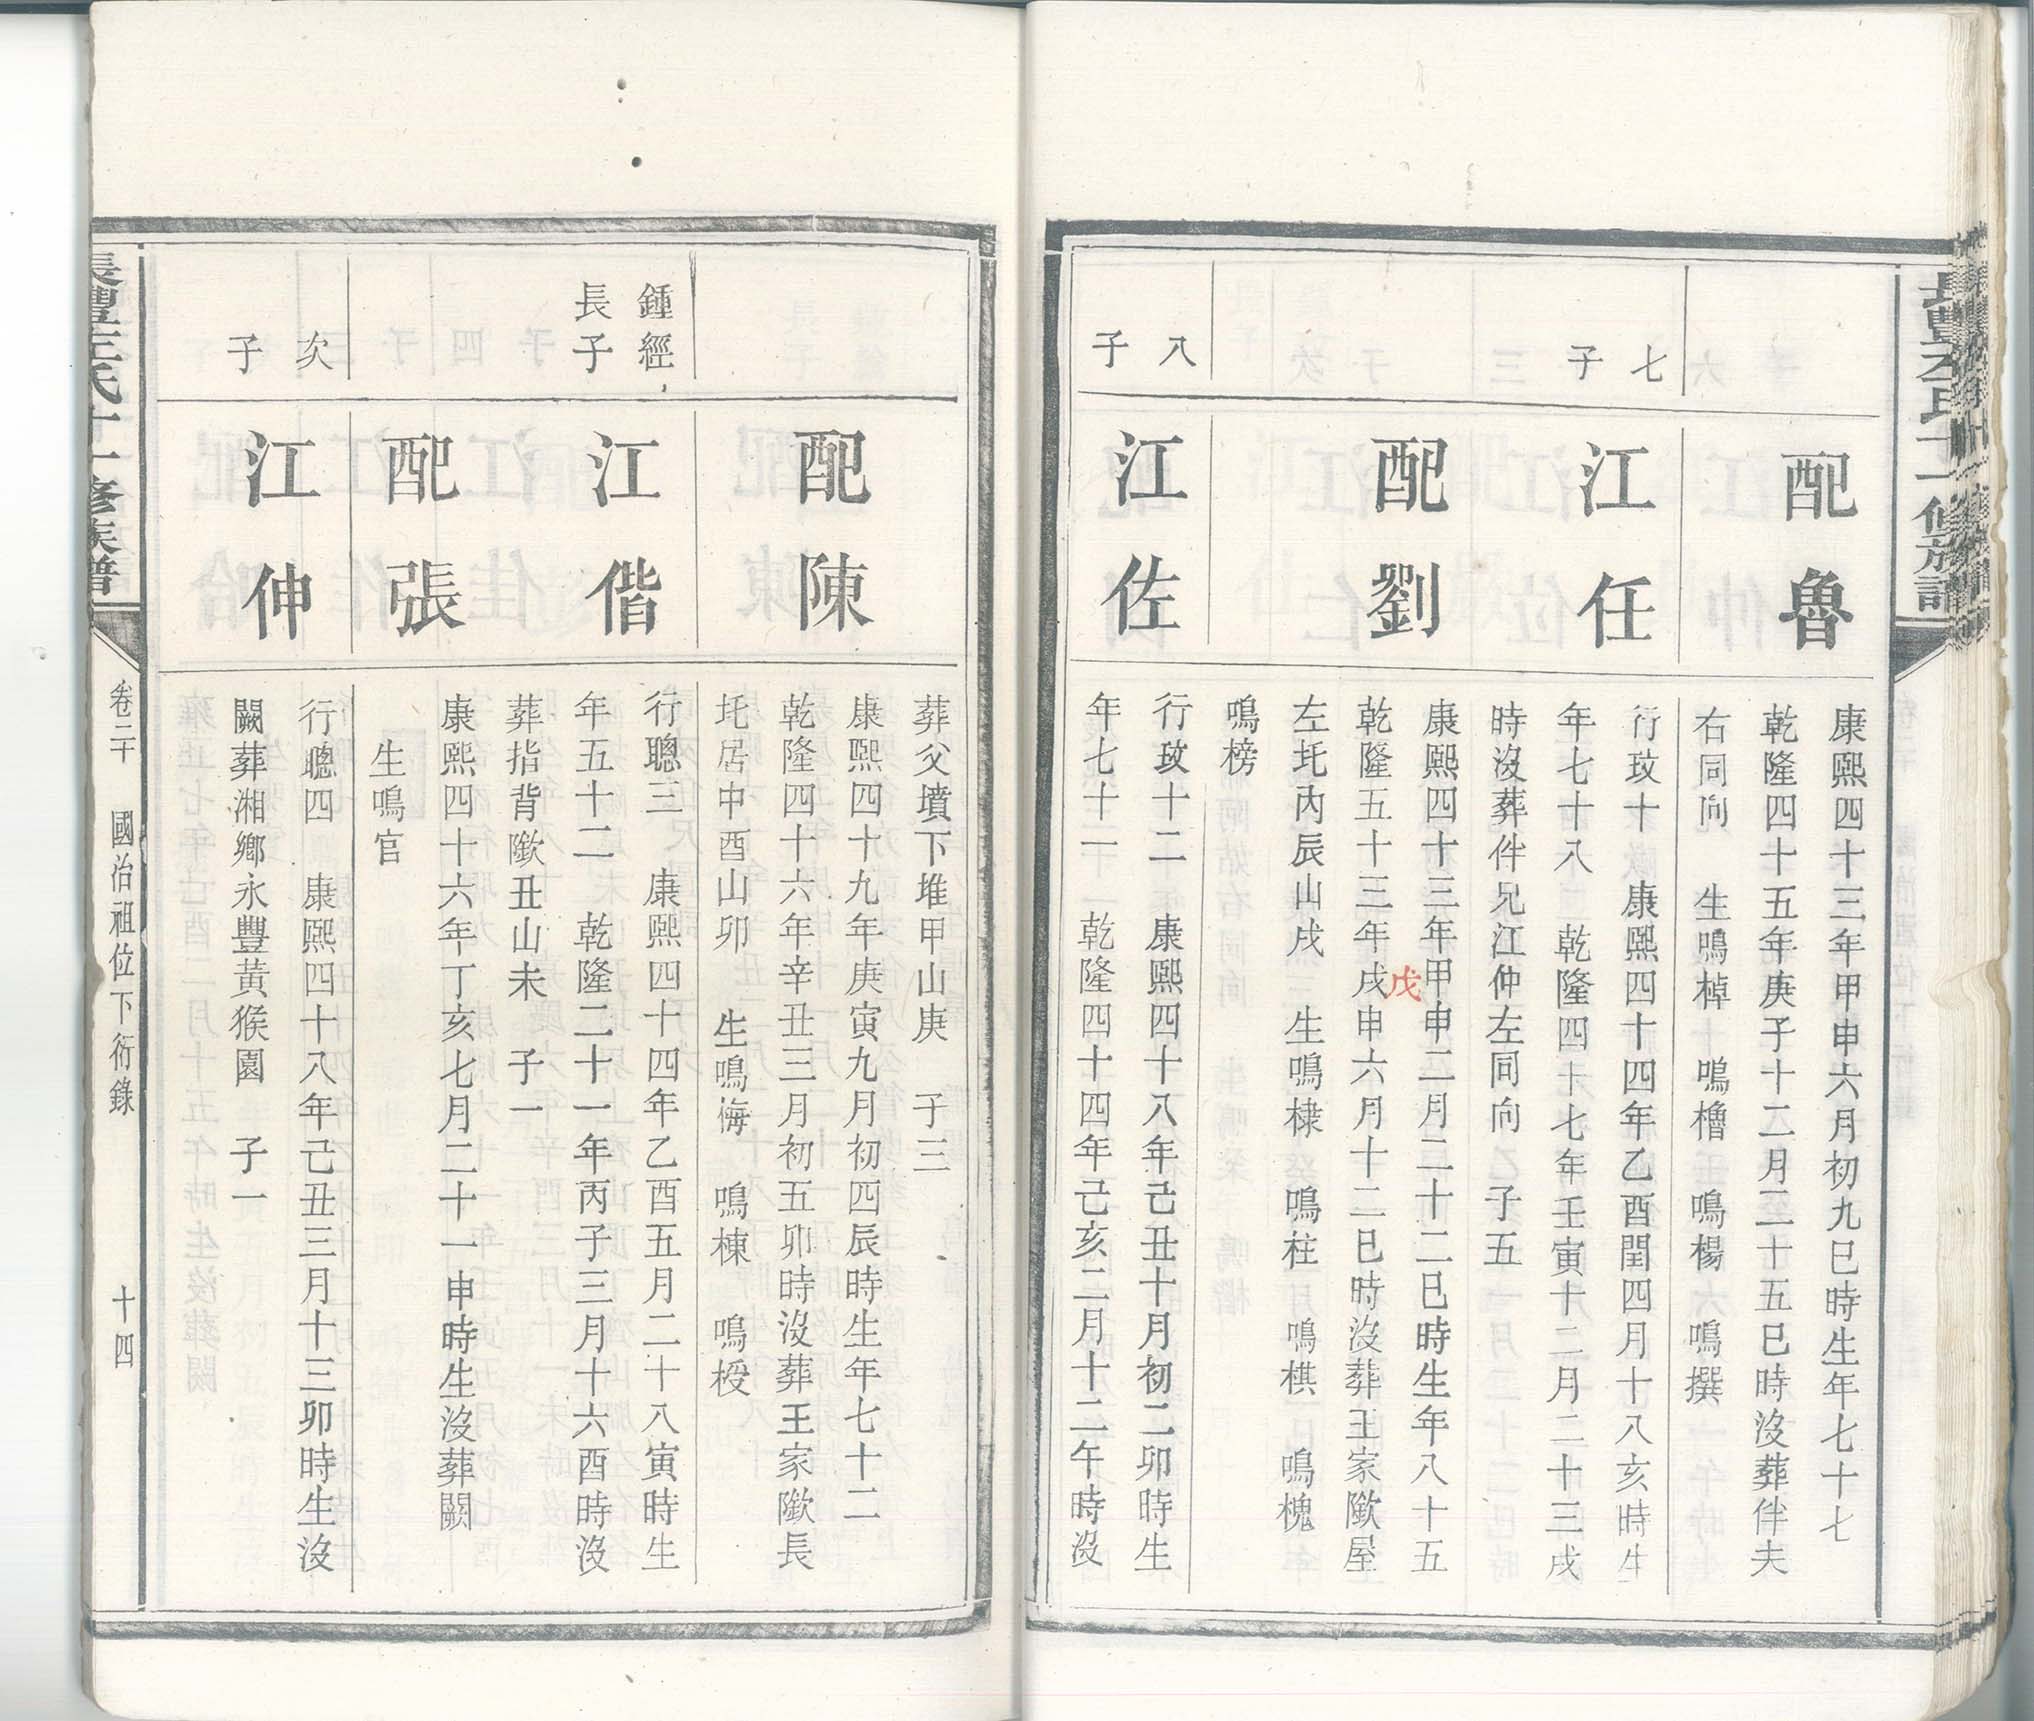 配魯
康熙四十三年甲申六月初九巳時生年七十七
乾隆四十五年庚子十二月二十五巳時沒葬伴夫
右同向　生鳴棹　鳴櫓　鳴楊　鳴撰
七子
江任
行玫十　康熙四十四年乙酉閏四月十八亥時生
年七十八　乾隆四十七年壬寅十二月二十三戌
時沒葬伴兄江仲左同向　子五
配劉
康熙四十三年甲申二月二十二巳時生年八十五
乾隆五十三年戌申六月十二巳時沒葬王家隞屋
戊
左圫丙辰山戌　生鳴棣　鳴柱　鳴棋　鳴槐
鳴榜
八子
江佐
行玫十二　康熙四十八年己丑十月初二卯時生
年七十一　乾隆四十四年己亥二月十二午時沒
葬父墳下堆甲山庚　子三
配陳
康熙四十九年庚寅九月初四辰時生年七十二
乾隆四十六年辛丑三月初五卯時沒葬王家隞長
圫居中酉山卯　生鳴梅　鳴棟　鳴
鍾經
長子
江偕
行聰三　康熙四十四年乙酉五月二十八寅時生
年五十二　乾隆二十一年丙子三月十六酉時沒
葬指背隞丑山未　子一
配張
康熙四十六年丁亥七月二十一申時生沒葬闕
生鳴官
次子
江伸
行聰四　康熙四十八年己丑三月十三卯時生沒
闕葬湘鄉永豐黃猴園　子一
氏十一修族譜
卷二十　國治祖位下衍錄　十四